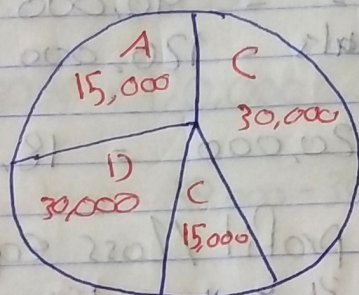 A
15,000
C
30,000
D
30,000
C
15,000